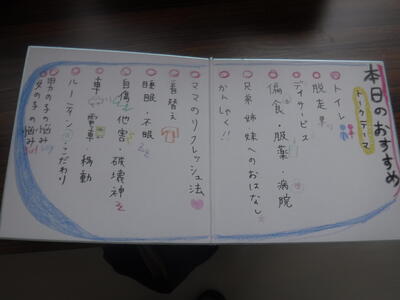 本日のおすすめ
トークテーマ
トイレ
脱走
デイサービス
偏食・服薬・病院
兄弟姉妹へのおはなし
かんしゃく!!
ママのリフレッシュ法
着替え
睡眠・不眠
自傷・他害・破壊神
車・電車・移動
ルーティン・こだわり
男の子の悩み
女の子の悩み